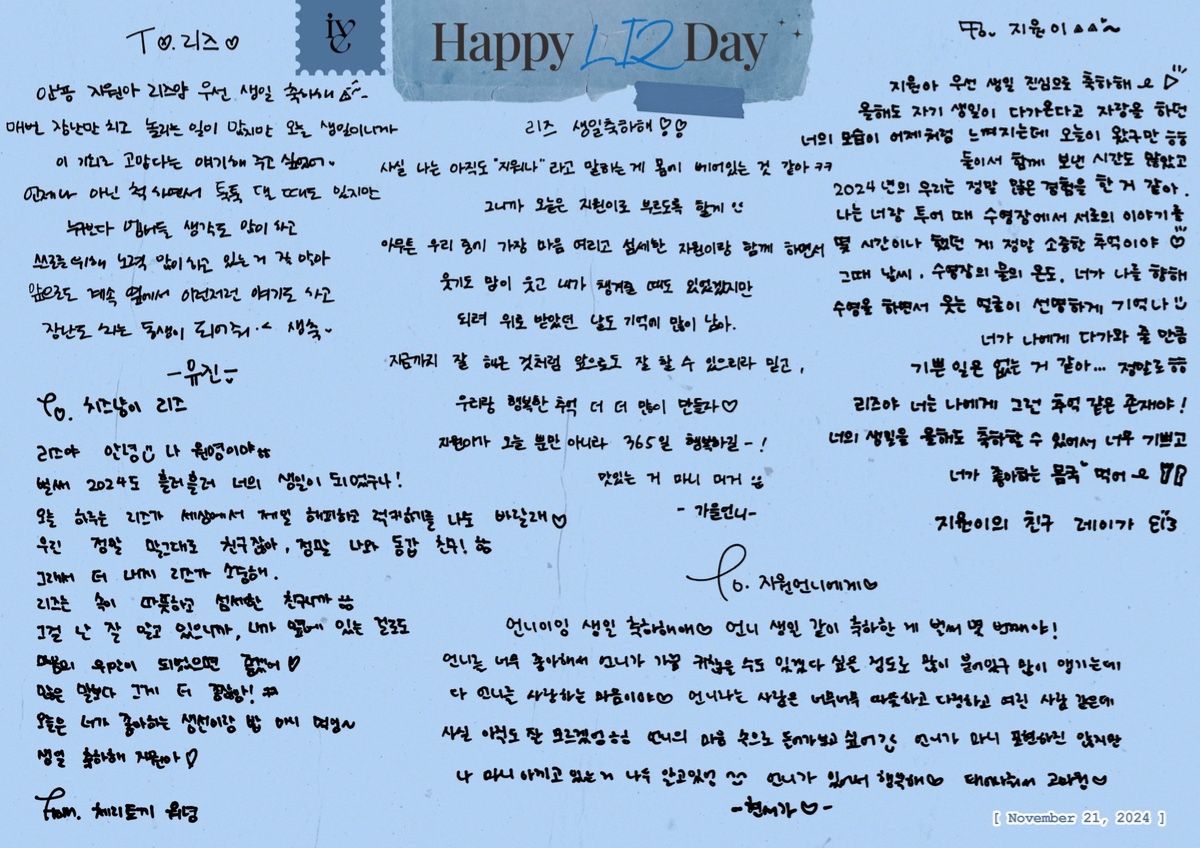 ive
Happy LIZ Day
To. 리즈♡
안뇽 지원아 리즈얌 우선 생일 축하해
매번 장난만 치고 놀리는 일이 많지만 오늘 생일이니까
이 기회로 고맙다는 얘기해 주고 싶었어~
언제나 아닌 척 하면서 툭툭 댈 때도 있지만
누구보다 멤버들 생각도 많이 하고
스스로를 위해 노력 많이 하고 있는 거 잘 알아
앞으로도 계속 옆에서 이런저런 얘기도 하고
장난도 치는 동생이 되어줘 생축~
-유진
To. 치즈냥이 리즈
리즈야 안녕 나 원영이야ㅎㅎ
벌써 2024도 흘러흘러 너의 생일이 되었구나!
오늘 하루는 리즈가 세상에서 제일 해피하고 럭키하기를 나도 바랄래♡
우린 정말 말그대로 친구잖아, 정말 나와 동갑 친구!
그래서 더 내게 리즈가 소중해.
리즈는 속이 따뜻하고 섬세한 친구니까 ㅎㅎ
그걸 난 잘 알고 있으니까, 내가 옆에 있는 걸로도
마음의 위안이 되었으면 좋겠어♡
많은 말보다 그게 더 중요해!
오늘은 너가 좋아하는 생선이랑 밥 마니 먹엉~
생일 축하해 지원아♡
from. 체리토끼 워녕
리즈 생일축하해♡♡
사실 나는 아직도 "지원나" 라고 말하는 게 몸에 베어있는 것 같아ㅋㅋ
그니까 오늘은 지원이로 부르도록 할게
아무튼 우리 중에 가장 마음 여리고 섬세한 지원이랑 함께 하면서
웃기도 많이 웃고 내가 챙겨줄 때도 있었겠지만
되려 위로 받았던 날도 기억에 많이 남아.
지금까지 잘 해온 것처럼 앞으로도 잘 할 수 있으리라 믿고,
우리랑 행복한 추억 더 더 많이 만들자♡
지원이가 오늘 뿐만 아니라 365일 행복하길-!
맛있는 거 마니 머거
-가을언니-
To. 지원이
지원아 우선 생일 진심으로 축하해
올해도 자기 생일이 다가온다고 자랑을 하던
너의 모습이 어제처럼 느껴지는데 오늘이 왔구만 ㅎㅎ
둘이서 함께 보낸 시간도 많았고
2024년의 우리는 정말 많은 경험을 한 거 같아.
나는 너랑 투어 때 수영장에서 서로의 이야기를
몇 시간이나 했던 게 정말 소중한 추억이야♡
그때 날씨, 수영장의 물의 온도, 너가 나를 향해
수영을 하면서 웃는 얼굴이 선명하게 기억나
너가 나에게 다가와 준 만큼
기쁜 일은 없는 거 같아... 정말로ㅎㅎ
리즈야 너는 나에게 그런 추억 같은 존재야!
너의 생일을 올해도 축하할 수 있어서 너무 기쁘고
너가 좋아하는 몸국 먹어
지원이의 친구 레이가
To. 지원언니에게♡
언니이잉 생일 축하해애♡ 언니 생일 같이 축하한 게 벌써 몇 번째야!
언니를 너무 좋아해서 언니가 가끔 귀찮을 수도 있겠다 싶은 정도로 많이 붙어있구 많이 앵기는데
다 언니를 사랑하는 마음이야♡ 언니라는 사람은 너무너무 따뜻하고 다정하고 여린 사람 같은데
사실 아직도 잘 모르겠엉ㅎㅎ 언니의 마음 속으로 들어가보고 싶어 언니가 마니 표현하진 않지만
나 마니 아끼고 있는거 너무 알고있엉 언니가 있어서 행복해♡ 태어나줘서 고마웡♡
-현서가♡-
[ November 21, 2024 ]